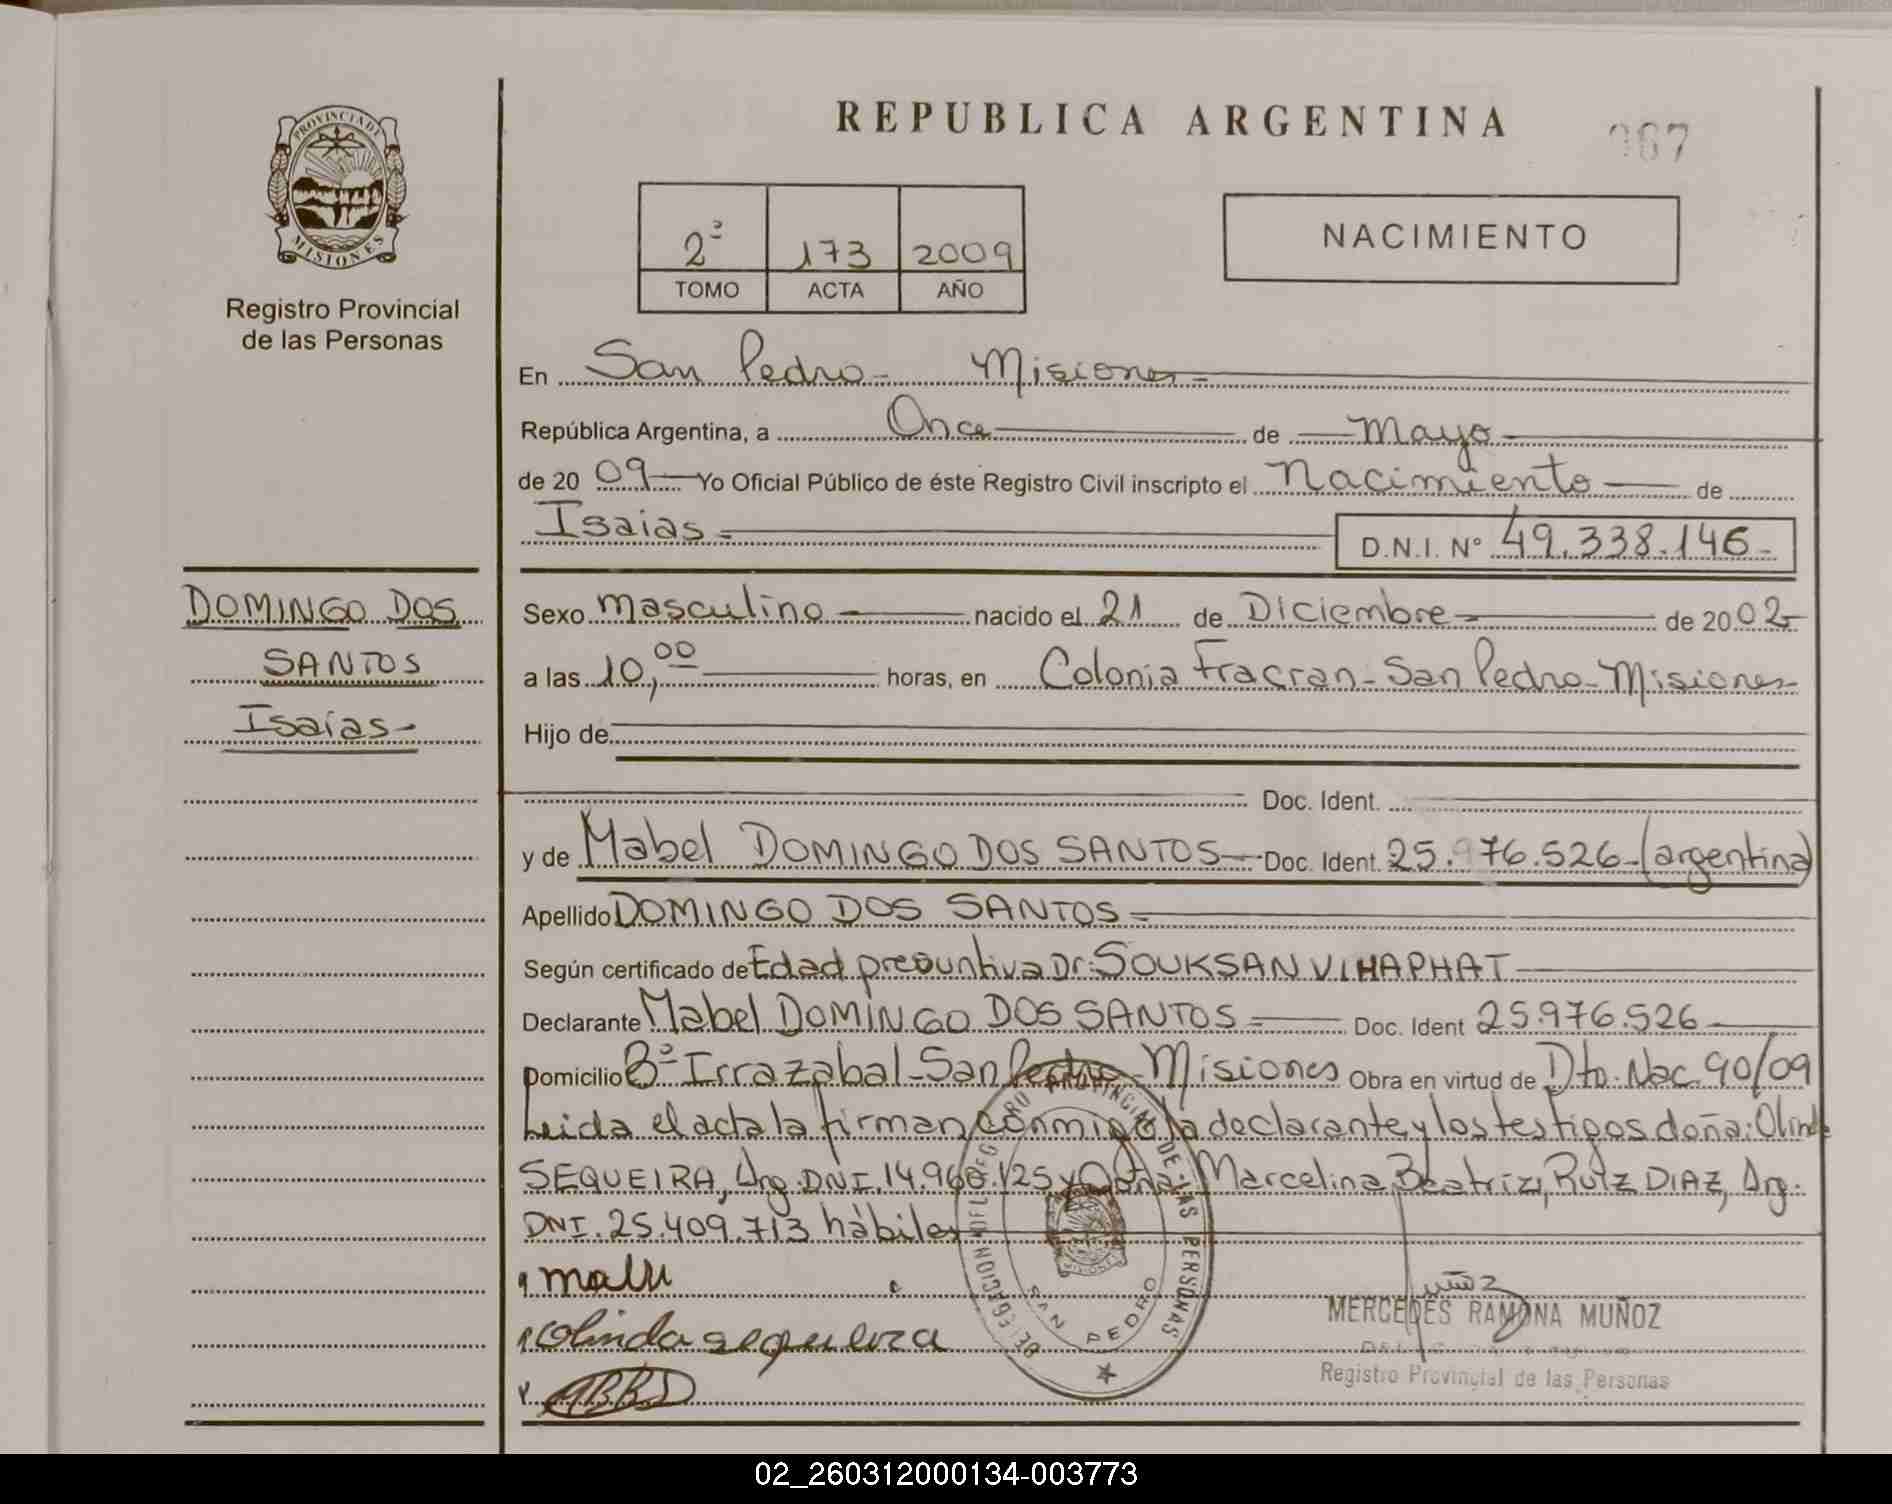 REPUBLICA ARGENTINA
367
PROVINCIA DE
MISIONES
Registro Provincial
de las Personas
2ª 173 2009
TOMO ACTA AÑO
NACIMIENTO
En San Pedro - Misiones
República Argentina, a Once de Mayo
de 20 09 Yo Oficial Público de éste Registro Civil inscripto el Nacimiento de
Isaias D.N.I. Nº 49.338.146-
DOMINGO DOS
SANTOS
Isaías-
Sexo Masculino nacido el 21 de Diciembre de 20 02-
a las 10,00 horas, en Colonia Fracran - San Pedro - Misiones
Hijo de
Doc. Ident.
y de Mabel DOMINGO DOS SANTOS Doc. Ident. 25.976.526-(argentina)
Apellido DOMINGO DOS SANTOS
Según certificado de Edad presuntiva Dr. SOUKSAN VIHAPHAT
Declarante Mabel DOMINGO DOS SANTOS Doc. Ident 25.976.526
Domicilio Bº Irrazabal - San Pedro - Misiones Obra en virtud de Dto. Nac. 90/09
Leida el acta la firman conmigo la declarante y los testigos doña: Olinda
SEQUEIRA, Arg. DNI. 14.960.125 y Doña: Marcelina Beatriz, RUIZ DIAZ, Arg.
DNI. 25.409.713 hábiles
Olinda sequeira
Muñoz
MERCEDES RAMONA MUÑOZ
Registro Provincial de las Personas
REGISTRO PROVINCIAL DE LAS PERSONAS
DELEGACION
SAN PEDRO
MISIONES
02_260312000134-003773